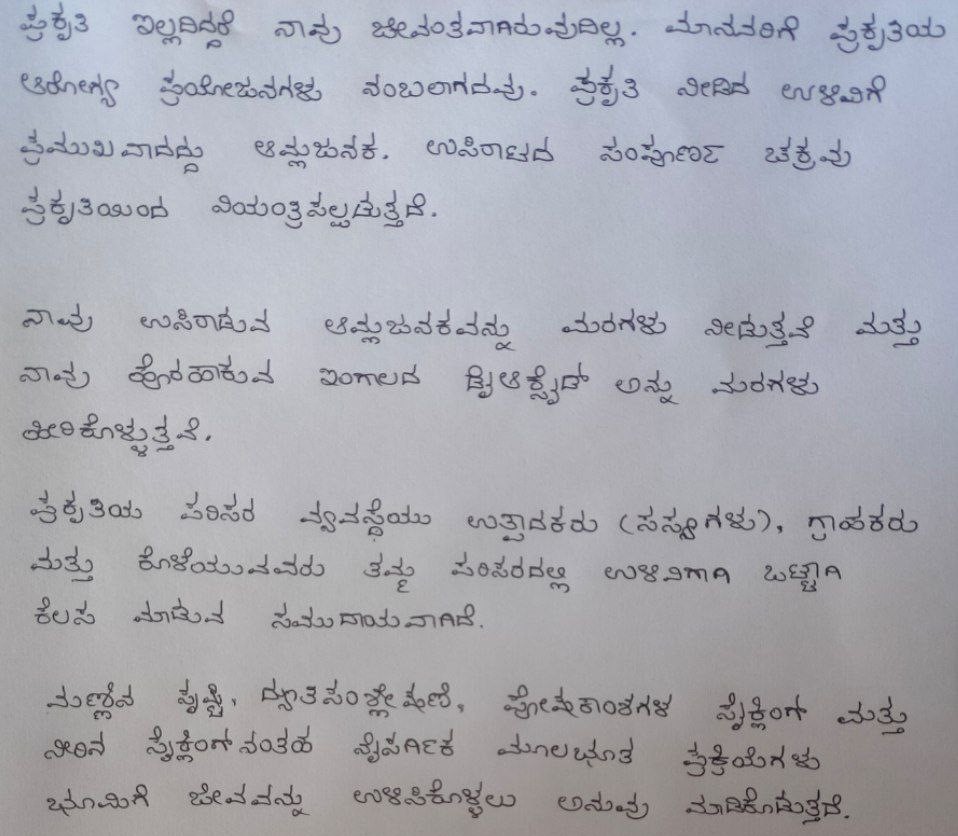 ಪ್ರಕೃತಿ ಇಲ್ಲದಿದ್ದರೆ ನಾವು ಜೀವಂತವಾಗಿರುವುದಿಲ್ಲ. ಮಾನವರಿಗೆ ಪ್ರಕೃತಿಯ
ಆರೋಗ್ಯ ಪ್ರಯೋಜನಗಳು ನಂಬಲಾಗದವು. ಪ್ರಕೃತಿ ನೀಡಿದ ಉಳಿವಿಗೆ
ಪ್ರಮುಖವಾದದ್ದು ಆಮ್ಲಜನಕ. ಉಸಿರಾಟದ ಸಂಪೂರ್ಣ ಚಕ್ರವು
ಪ್ರಕೃತಿಯಿಂದ ನಿಯಂತ್ರಿಸಲ್ಪಡುತ್ತದೆ.
ನಾವು ಉಸಿರಾಡುವ ಆಮ್ಲಜನಕವನ್ನು ಮರಗಳು ನೀಡುತ್ತವೆ ಮತ್ತು
ನಾವು ಹೊರಹಾಕುವ ಇಂಗಾಲದ ಡೈಆಕ್ಸೈಡ್ ಅನ್ನು ಮರಗಳು
ಹೀರಿಕೊಳ್ಳುತ್ತವೆ.
ಪ್ರಕೃತಿಯ ಪರಿಸರ ವ್ಯವಸ್ಥೆಯು ಉತ್ಪಾದಕರು (ಸಸ್ಯಗಳು), ಗ್ರಾಹಕರು
ಮತ್ತು ಕೊಳೆಯುವವರು ತಮ್ಮ ಪರಿಸರದಲ್ಲಿ ಉಳಿವಿಗಾಗಿ ಒಟ್ಟಾಗಿ
ಕೆಲಸ ಮಾಡುವ ಸಮುದಾಯವಾಗಿದೆ.
ಮಣ್ಣಿನ ಸೃಷ್ಟಿ, ದ್ಯುತಿಸಂಶ್ಲೇಷಣೆ, ಪೋಷಕಾಂಶಗಳ ಸೈಕ್ಲಿಂಗ್ ಮತ್ತು
ನೀರಿನ ಸೈಕ್ಲಿಂಗ್‌ನಂತಹ ನೈಸರ್ಗಿಕ ಮೂಲಭೂತ ಪ್ರಕ್ರಿಯೆಗಳು
ಭೂಮಿಗೆ ಜೀವವನ್ನು ಉಳಿಸಿಕೊಳ್ಳಲು ಅನುವು ಮಾಡಿಕೊಡುತ್ತದೆ.